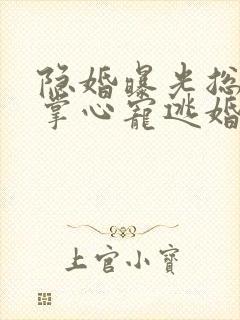 隐婚曝光总
掌心宠逃婚
上官小宝